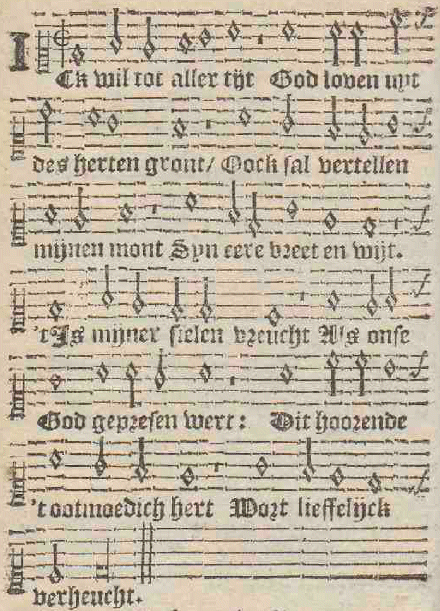 ICk wil tot aller tijt God loven uyt
des herten gront/ Oock sal vertellen
mijnen mont Syn eere breet en wijt.
'tIs mijner sielen vreucht Als onse
God gepresen wert: Dit hoorende
't ootmoedich hert Wort lieffelijck
verheucht.